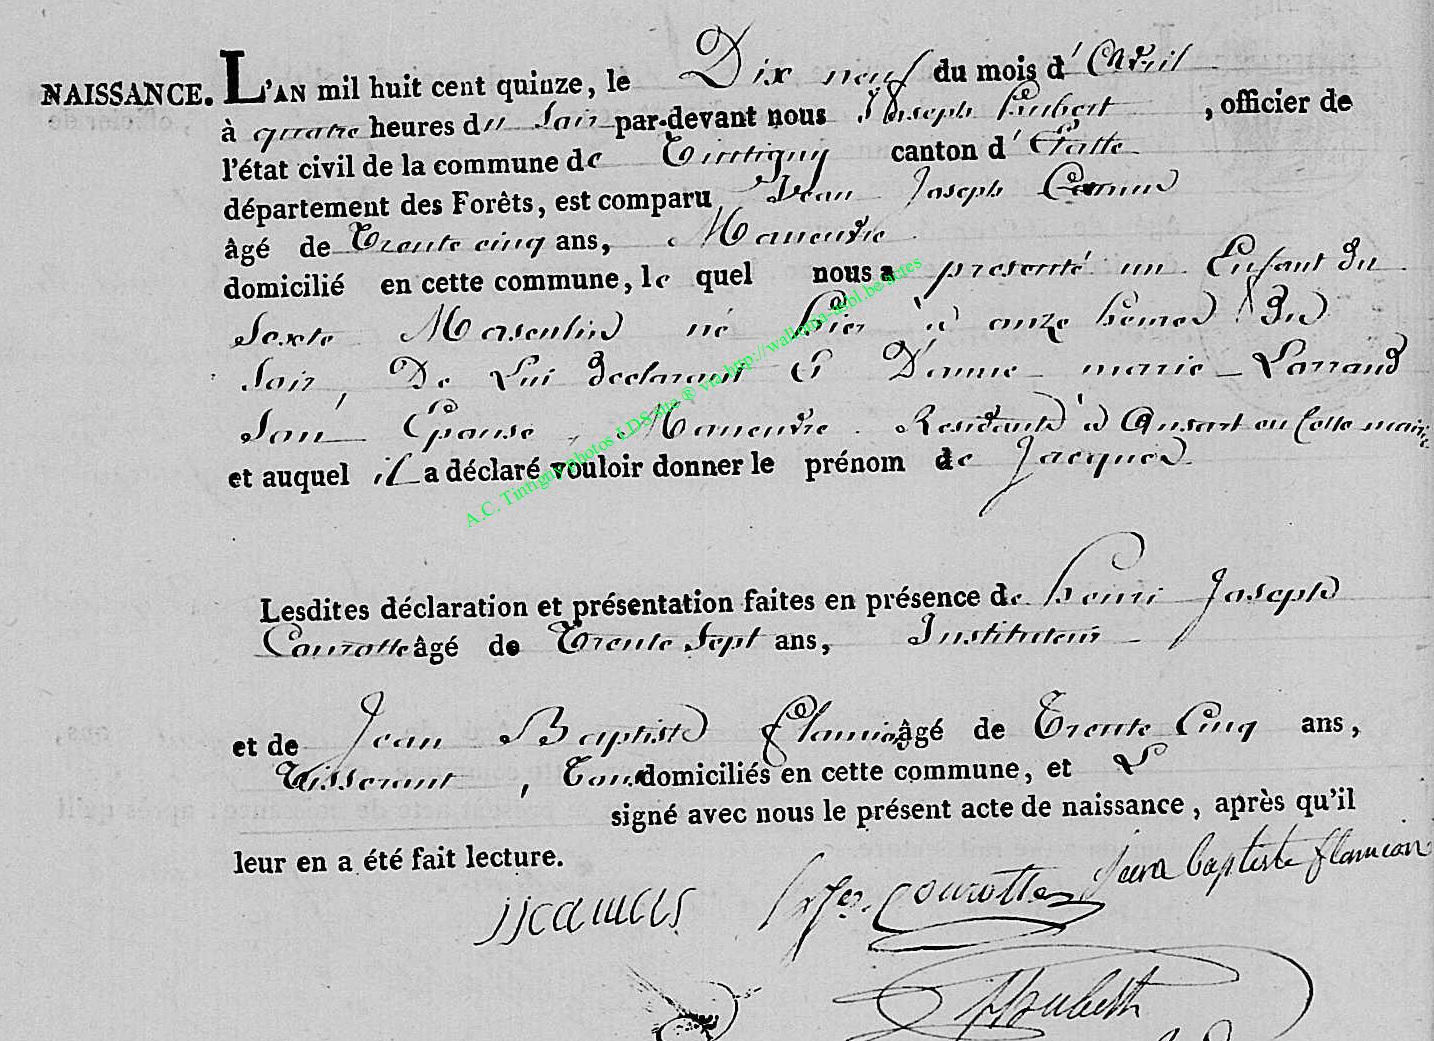 NAISSANCE. L'AN mil huit cent quinze, le Dix neuf du mois d'avril
à quatre heures du Soir par-devant nous Joseph hubert, officier de
l'état civil de la commune de Tintigny canton d'Etalle
département des Forêts, est comparu Jean Joseph Camus
âgé de Trente cinq ans, Maneuvre
domicilié en cette commune, le quel nous a presenté un Enfant Du
Sexte Masculin né hier à onze heures Du
Soir, De Lui Declarant et D'anne marie Larrand
Son Epouse, Maneuvre Residants à ansart en Cette mairie
et auquel il a déclaré vouloir donner le prénom de Jacques
A.C. Tintigny photos LDS site ® via http://wallonia-asbl.be/actes
Lesdites déclaration et présentation faites en présence de henri Joseph
Courotte âgé de Trente Sept ans, Instituteur
et de Jean Baptiste flamion âgé de Trente Cinq ans,
Tisserant, Tous domiciliés en cette commune, et
signé avec nous le présent acte de naissance, après qu'il
leur en a été fait lecture.
jjcamus courotte jean baptiste flamion
Hubert